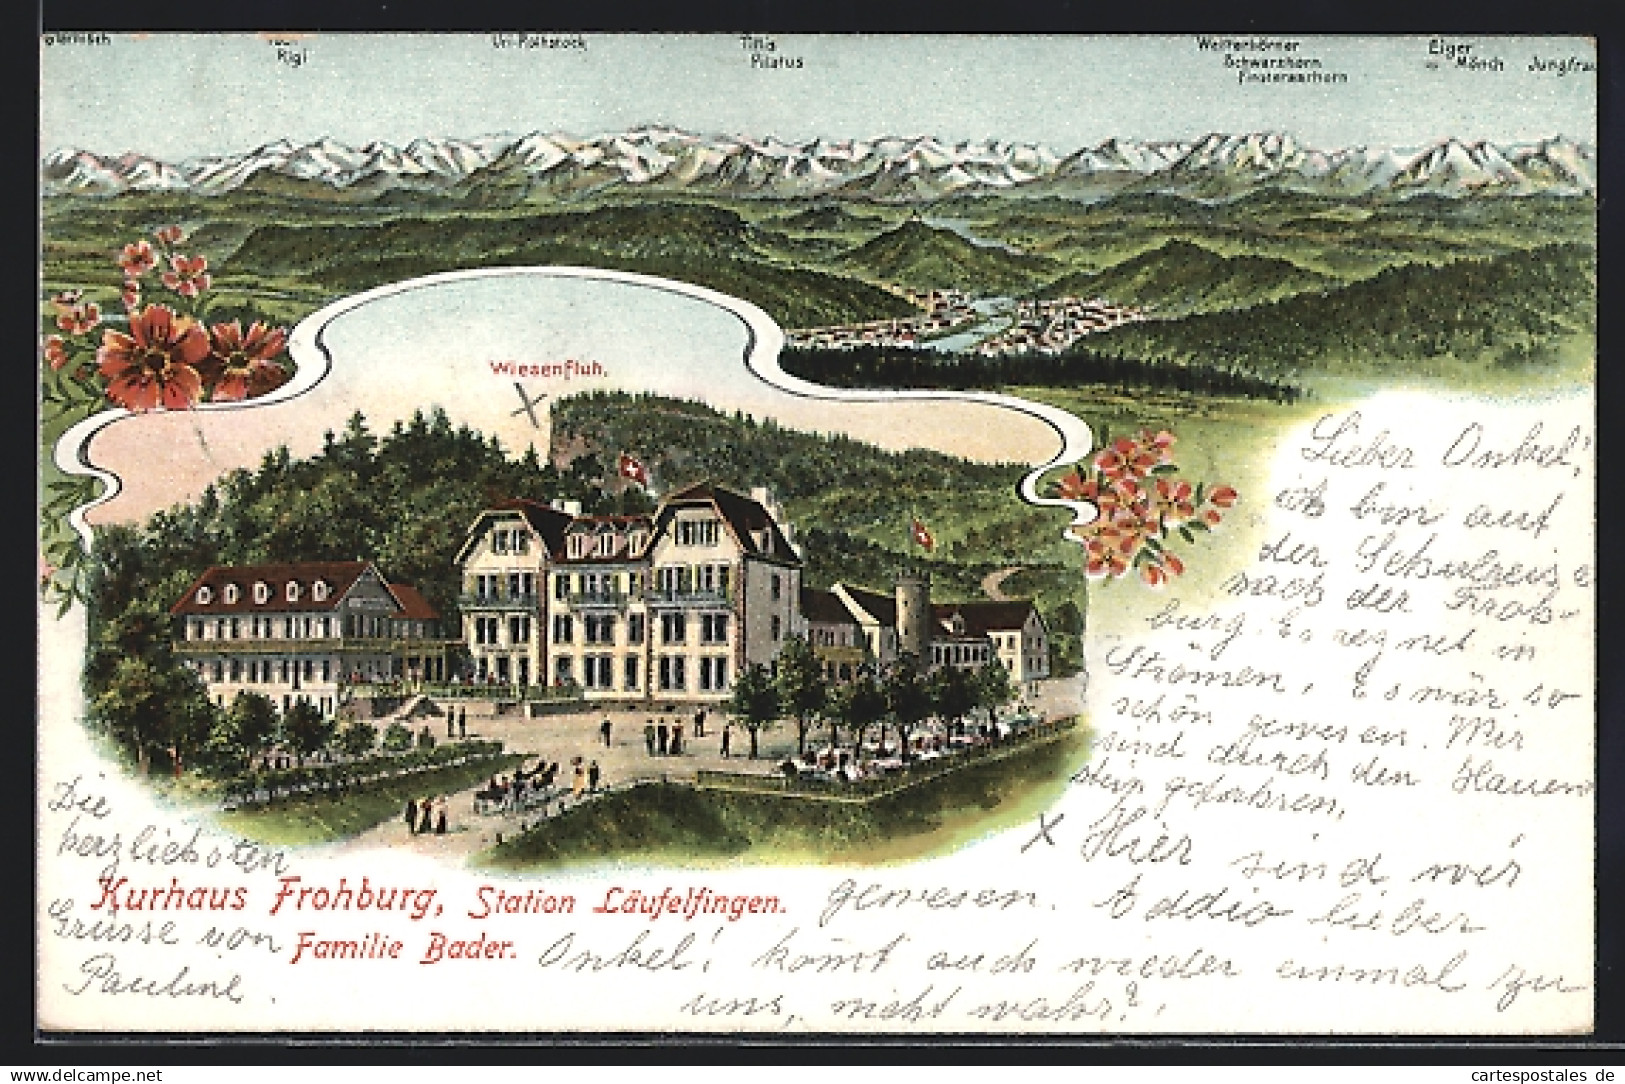 Glärnisch
Rigi
Uri-Rothstock
Titlis
Pilatus
Wetterhörner
Schwarzhorn
Finsteraarhorn
Eiger
Mönch
Jungfrau
Wiesenfluh.
Lieber Onkel!
ich bin auf
der Schulreise
nach der Froh-
burg. Es regnet in
Strömen, Es wär so
schön gewesen. Mir
sind durch den Hauen-
stein gefahren.
X Hier sind wir
gewesen. Addio lieber
Onkel! kömt auch wieder einmal zu
uns, nicht wahr?
Die
herzlichsten
Grüsse von
Pauline.
Kurhaus Frohburg, Station Läufelfingen.
Familie Bader.
Delcampe.net
cartespostales de